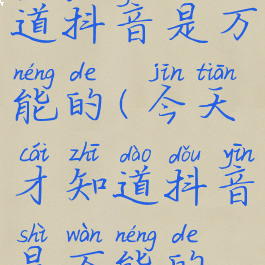 道抖音是万
néng de jīn tiān
能的(今天
cái zhī dào dǒu yīn
才知道抖音
shì wàn néng de
是万能的